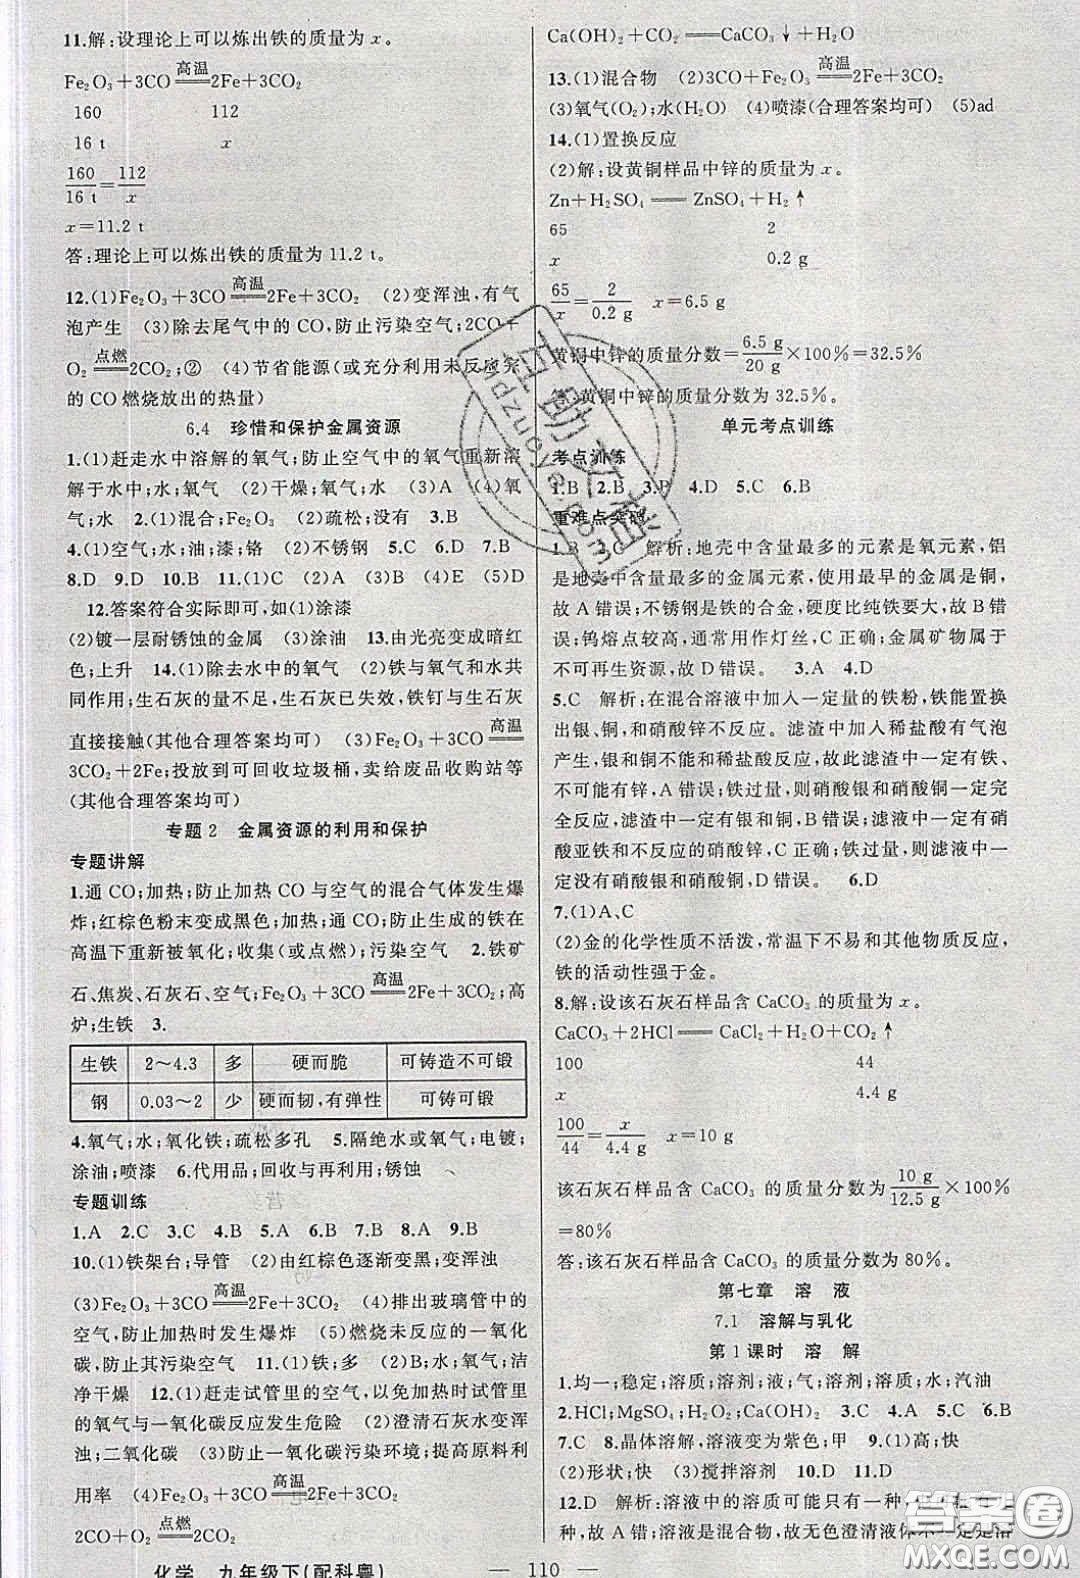 11.解:设理论上可以炼出铁的质量为 x。
Fe₂O₃+3CO══高温══2Fe+3CO₂
160 112
16 t x
160/16 t=112/x
x=11.2 t
答:理论上可以炼出铁的质量为 11.2 t。
12.(1)Fe₂O₃+3CO══高温══2Fe+3CO₂ (2)变浑浊,有气
泡产生 (3)除去尾气中的 CO,防止污染空气;2CO+
O₂══点燃══2CO₂;② (4)节省能源(或充分利用未反应完
的 CO 燃烧放出的热量)
6.4 珍惜和保护金属资源
1.(1)赶走水中溶解的氧气;防止空气中的氧气重新溶
解于水中;水;氧气 (2)干燥;氧气;水 (3)A (4)氧
气;水 2.(1)混合;Fe₂O₃ (2)疏松;没有 3.B
4.(1)空气;水;油;漆;铬 (2)不锈钢 5.C 6.D 7.B
8.D 9.D 10.B 11.(1)C (2)A (3)B (4)E (5)D
12.答案符合实际即可,如(1)涂漆
(2)镀一层耐锈蚀的金属 (3)涂油 13.由光亮变成暗红
色;上升 14.(1)除去水中的氧气 (2)铁与氧气和水共
同作用;生石灰的量不足,生石灰已失效,铁钉与生石灰
直接接触(其他合理答案均可) (3)Fe₂O₃+3CO══高温══
3CO₂+2Fe;投放到可回收垃圾桶,卖给废品收购站等
(其他合理答案均可)
专题 2 金属资源的利用和保护
专题讲解
1.通 CO;加热;防止加热 CO 与空气的混合气体发生爆
炸;红棕色粉末变成黑色;加热;通 CO;防止生成的铁在
高温下重新被氧化;收集(或点燃);污染空气 2.铁矿
石、焦炭、石灰石、空气;Fe₂O₃+3CO══高温══2Fe+3CO₂;高
炉;生铁 3.
生铁 2～4.3 多 硬而脆 可铸造不可锻
钢 0.03～2 少 硬而韧,有弹性 可铸可锻
4.氧气;水;氧化铁;疏松多孔 5.隔绝水或氧气;电镀;
涂油;喷漆 6.代用品;回收与再利用;锈蚀
专题训练
1.A 2.C 3.C 4.B 5.A 6.B 7.B 8.A 9.B
10.(1)铁架台;导管 (2)由红棕色逐渐变黑;变浑浊
(3)Fe₂O₃+3CO══高温══2Fe+3CO₂ (4)排出玻璃管中的
空气,防止加热时发生爆炸 (5)燃烧未反应的一氧化
碳,防止其污染空气 11.(1)铁;多 (2)氧气;水;洁
净干燥 12.(1)赶走试管里的空气,以免加热时试管里
的氧气与一氧化碳反应发生危险 (2)澄清石灰水变浑
浊;二氧化碳 (3)防止一氧化碳污染环境;提高原料利
用率 (4)Fe₂O₃+3CO══高温══2Fe+3CO₂
2CO+O₂══点燃══2CO₂
Ca(OH)₂+CO₂══CaCO₃↓+H₂O
13.(1)混合物 (2)3CO+Fe₂O₃══高温══2Fe+3CO₂
(3)氧气(O₂);水(H₂O) (4)喷漆(合理答案均可) (5)ad
14.(1)置换反应
(2)解:设黄铜样品中锌的质量为 x。
Zn+H₂SO₄══ZnSO₄+H₂↑
65 2
x 0.2 g
65/x=2/0.2 g x=6.5 g
黄铜中锌的质量分数=6.5 g/20 g×100%=32.5%
答:黄铜中锌的质量分数为 32.5%。
单元考点训练
考点训练
1.B 2.B 3.B 4.D 5.C 6.B
重难点突破
1.B 2.C 解析:地壳中含量最多的元素是氧元素,铝
是地壳中含量最多的金属元素,使用最早的金属是铜,
故 A 错误;不锈钢是铁的合金,硬度比纯铁要大,故 B 错
误;钨熔点较高,通常用作灯丝,C 正确;金属矿物属于
不可再生资源,故 D 错误。 3.A 4.D
5.C 解析:在混合溶液中加入一定量的铁粉,铁能置换
出银、铜,和硝酸锌不反应。滤渣中加入稀盐酸有气泡
产生,银和铜不能和稀盐酸反应,故滤渣中一定有铁、
不可能有锌,A 错误;有铁,则硝酸银和硝酸铜一定完
全反应,故滤渣中一定有银和铜,B 错误;滤液中一定有硝
酸亚铁和不反应的硝酸锌,C 正确;铁过量,则滤液中一
定没有硝酸银和硝酸铜,D 错误。 6.D
7.(1)A、C
(2)金的化学性质不活泼,常温下不易和其他物质反应,
铁的活动性强于金。
8.解:设该石灰石样品含 CaCO₃ 的质量为 x。
CaCO₃+2HCl══CaCl₂+H₂O+CO₂↑
100 44
x 4.4 g
100/44=x/4.4 g x=10 g
该石灰石样品含 CaCO₃ 的质量分数为 10 g/12.5 g×100%
=80%
答:该石灰石样品含 CaCO₃ 的质量分数为 80%。
第七章 溶 液
7.1 溶解与乳化
第 1 课时 溶 解
1.均一;稳定;溶质;溶剂;液;气;溶剂;溶质;水;汽油
2.HCl;MgSO₄;H₂O₂;Ca(OH)₂ 3.C 4.A 5.C 6.B
7.C 8.晶体溶解,溶液变为紫色;甲 9.(1)高;快
(2)形状;快 (3)搅拌溶剂 10.D 11.D
12.D 解析:溶液中的溶质可能只有一种,
种,故 A 错;溶液是混合物,故无色澄清液体不一定是溶
化学 九年级下(配科粤) — 110 —
答案圈
MXQE.COM